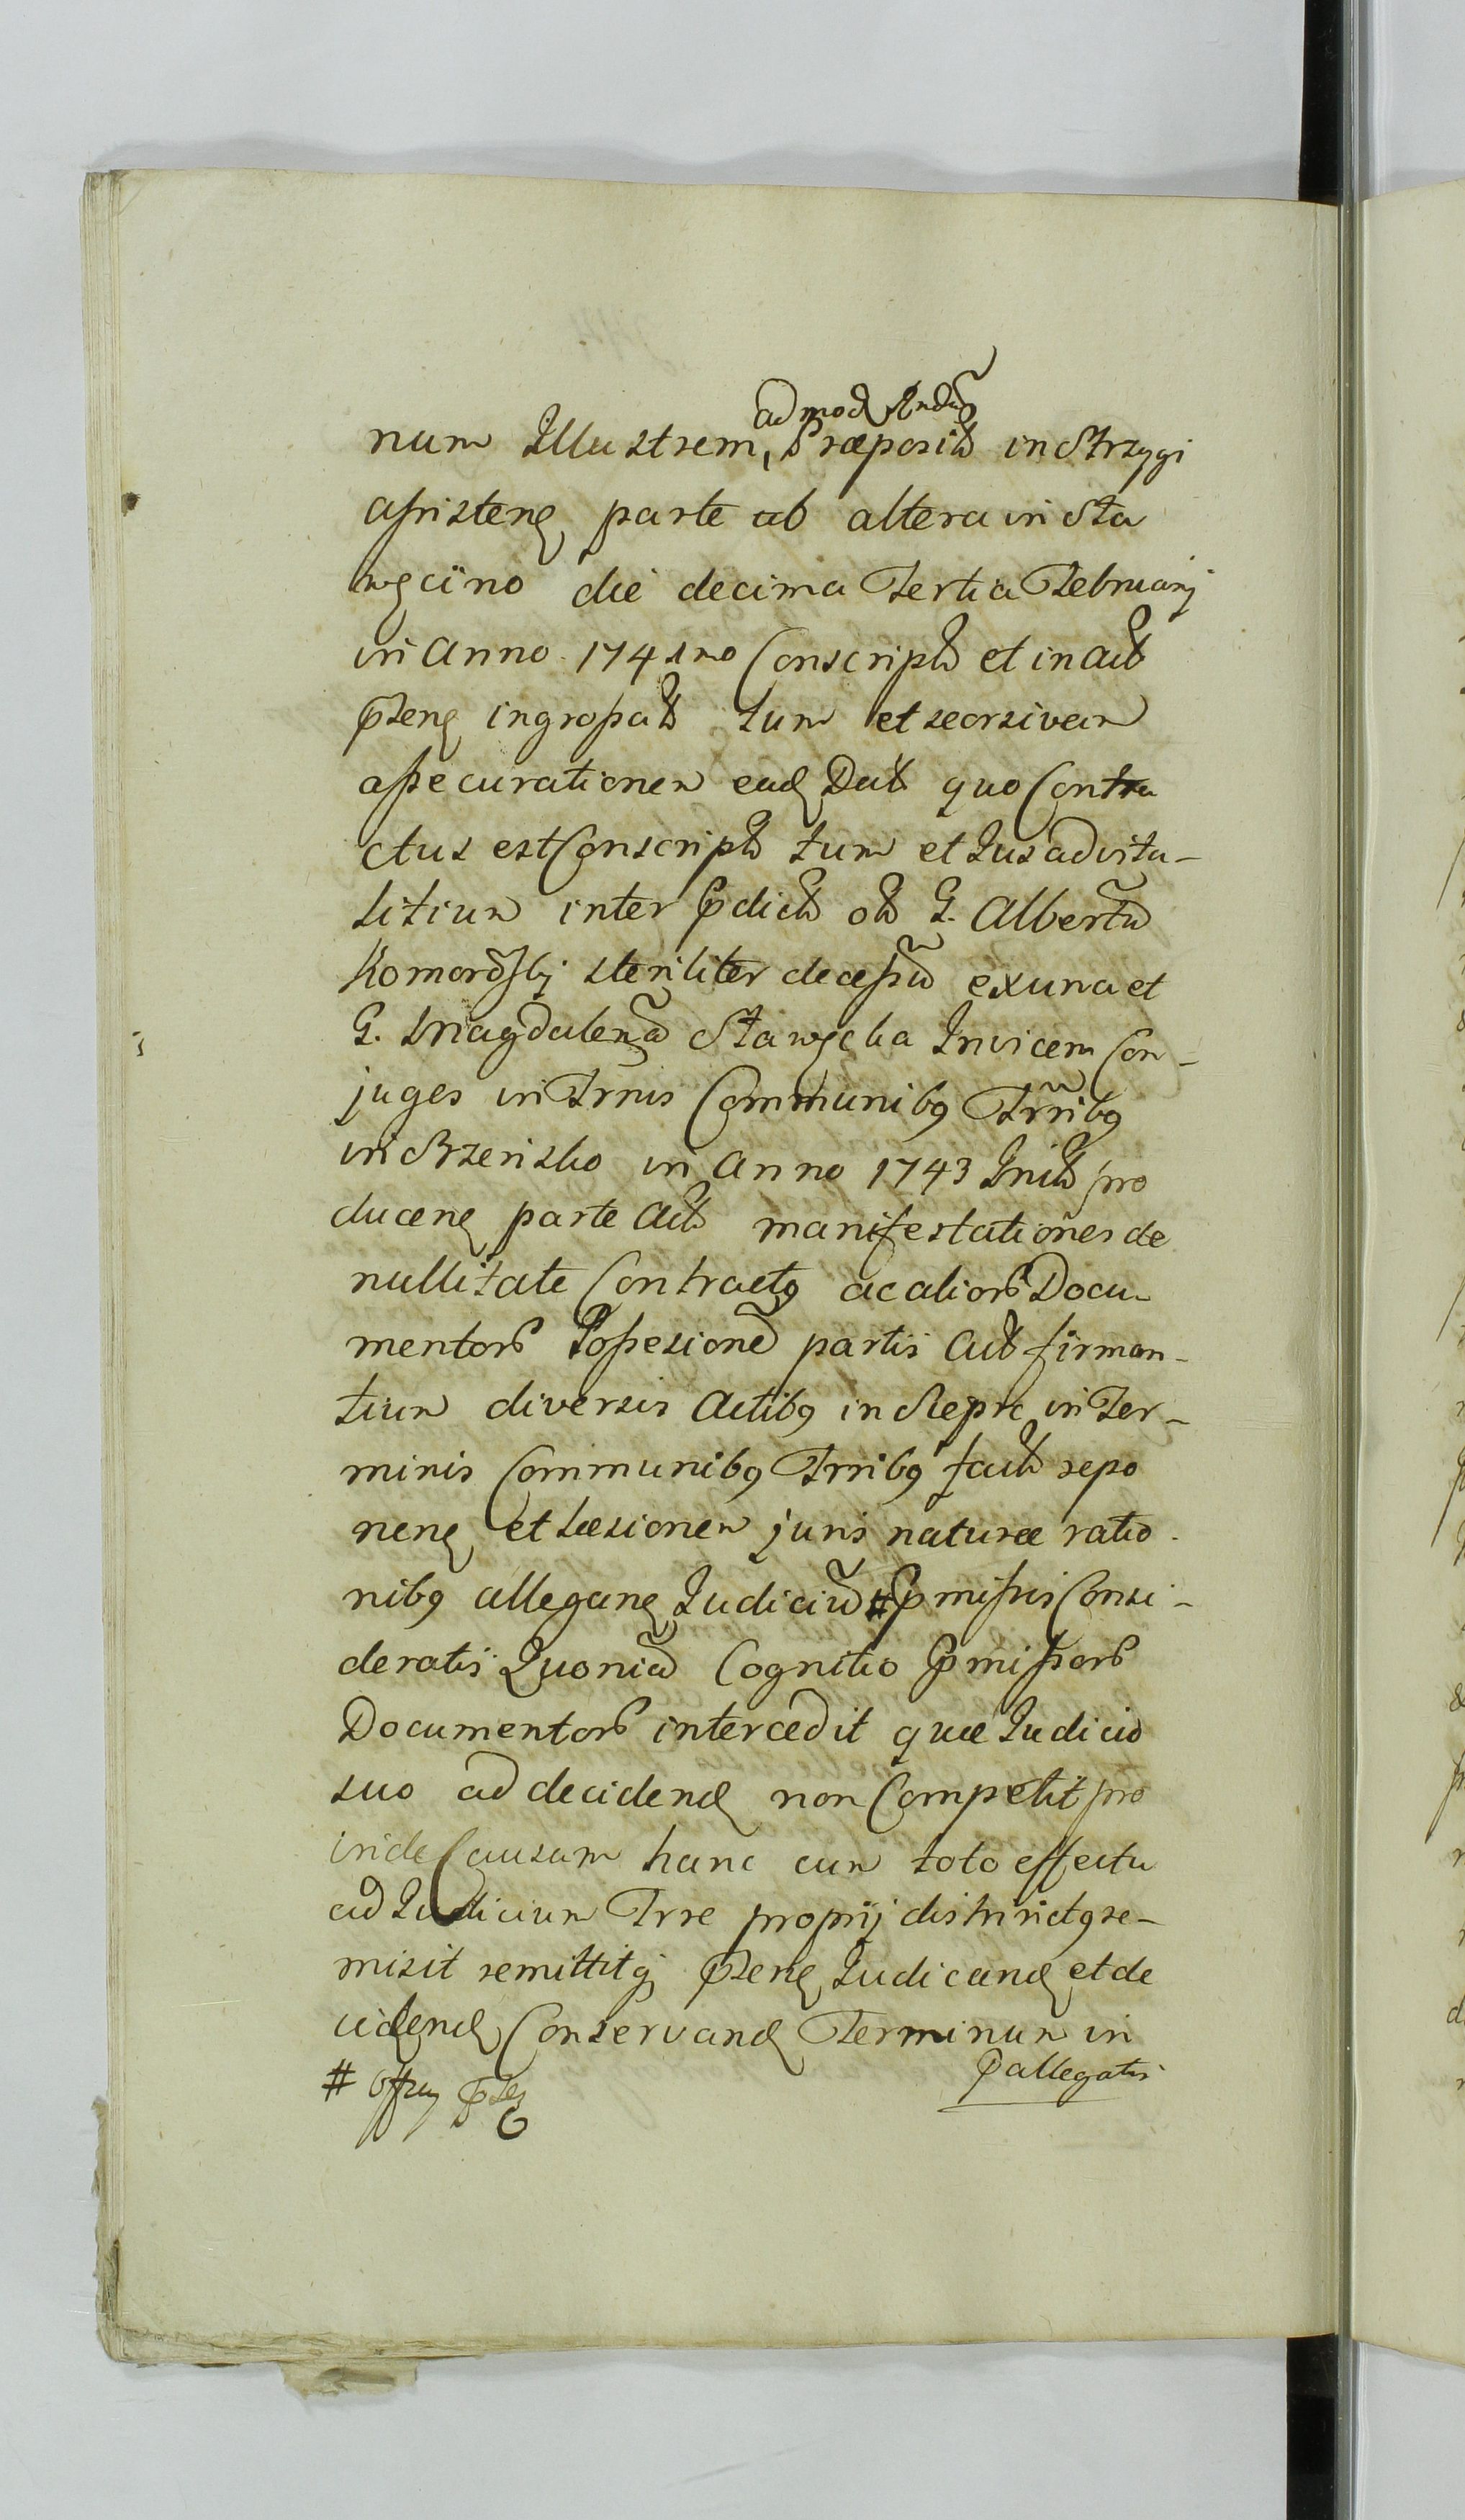 admod Rndũ
num Illustrem, Præposit in Strzygi
assistenę parte ab altera in Sta
węcino die decima Tertia Februarij
in Anno 1741mo Conscript et in Act
pntenę ingrossat tum et seorsivam
assecurationem ead Dat quo Contra
ctus est Conscript tum et Jus advita-
litium inter pdict ol G. Albertũ
Komorowskj steriliter decessũ ex una et
G. Magdalenã Stawęcka Invicem Con-
juges in Trnis Communibg Trribg
in Brzensko in Anno 1743 Init pro
ducenę parte Act manifestationes de
nullitate Contractg ac alior Docu
mentor Possesionē partis Act firman-
tium diversis Actibg in Repr in Ter-
minis Communibg Trribg fact repo
nenę et Læsionem juris naturæ ratio
nibg alleganę Judiciũ # pmissis Consi-
deratis Quoniã Cognitio pmissor
Documentor intercedit quæ Judicio
suo ad decidend non Competit pro
inde Causam hanc cum toto effectu
ad Judicium Trre proprij districtg re-
misit remittitq pntenę Judicand et de
cidend Conservand Terminum in
pallegatis
#